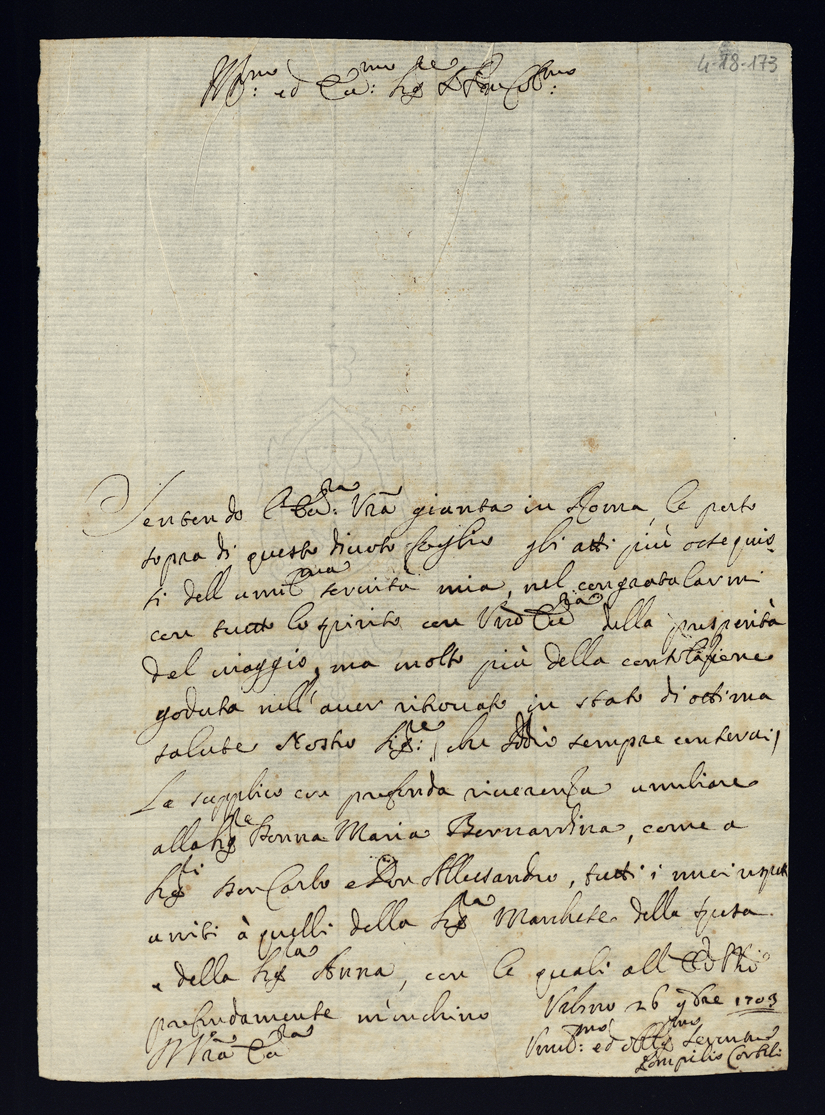 4-18-173
Ill:mo ed Ecc:mo Sig:re Pron Col:mo
Sentendo l'Ecc:za Vra giunta in Roma, le porto
sopra di questo divoto foglio gli atti più ossequio-
si dell'umil:ma servitù mia, nel congratularmi
con tutto lo spirito con Vra Ecc:za della prosperità
del viaggio, ma molto più della consolazione
goduta nell'aver ritrovato in stato di ottima
salute Nostro Sig:re, che Iddio sempre conservi,
La supplico con profonda riverenza umiliare
alla Sig:ra Donna Maria Bernardina, come a
Sig:ri Don Carlo e Don Alessandro, tutti i miei
uniti à quelli della Sig:ra Marchese della
e della Sig:ra Anna, con le quali all'
profondamente m'inchino Urbino 26 9bre 1703
Di Vra Ecc:za
Umil:mo ed Obblig:mo Servitore
Pompilio